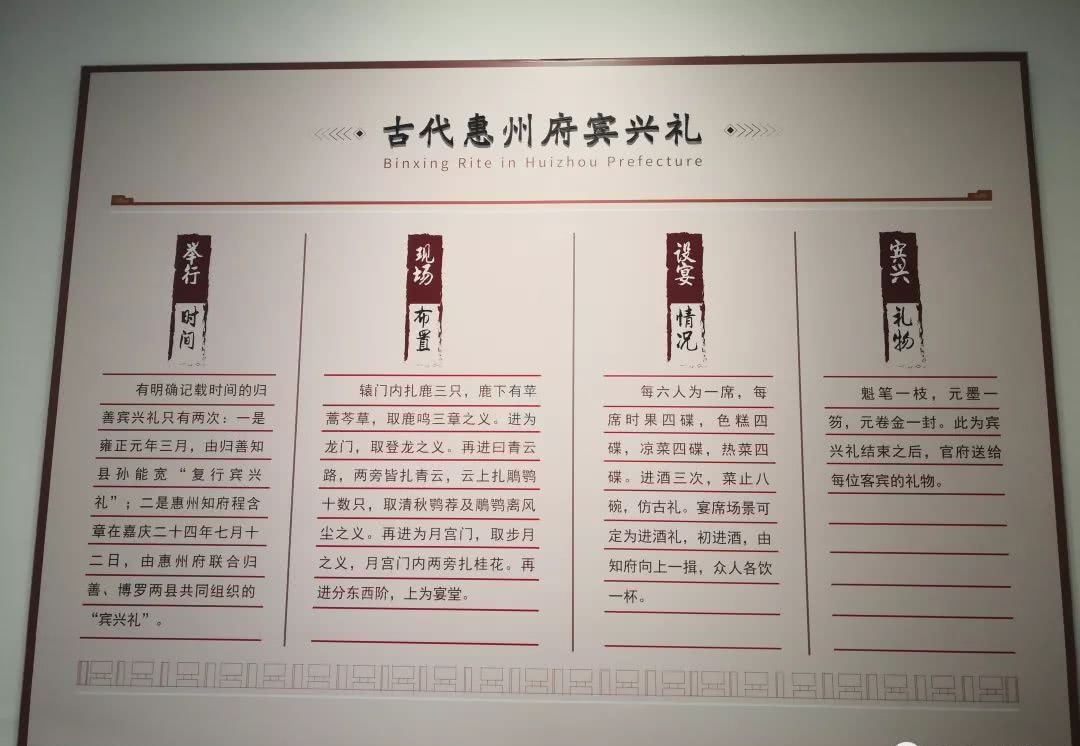 古代惠州府宾兴礼
Binxing Rite in Huizhou Prefecture
举行
时间
有明确记载时间的归
善宾兴礼只有两次：一是
雍正元年三月，由归善知
县孙能宽“复行宾兴
礼”；二是惠州知府程含
章在嘉庆二十四年七月十
二日，由惠州府联合归
善、博罗两县共同组织的
“宾兴礼”。
现场
布置
辕门内扎鹿三只，鹿下有苹
蒿芩草，取鹿鸣三章之义。进为
龙门，取登龙之义。再进曰青云
路，两旁皆扎青云，云上扎鵰鹗
十数只，取清秋鹗荐及鵰鹗离风
尘之义。再进为月宫门，取步月
之义，月宫门内两旁扎桂花。再
进分东西阶，上为宴堂。
设宴
情况
每六人为一席，每
席时果四碟，色糕四
碟，凉菜四碟，热菜四
碟。进酒三次，菜止八
碗，仿古礼。宴席场景可
定为进酒礼，初进酒，由
知府向上一揖，众人各饮
一杯。
宾兴
礼物
魁笔一枝，元墨一
笏，元卷金一封。此为宾
兴礼结束之后，官府送给
每位客宾的礼物。